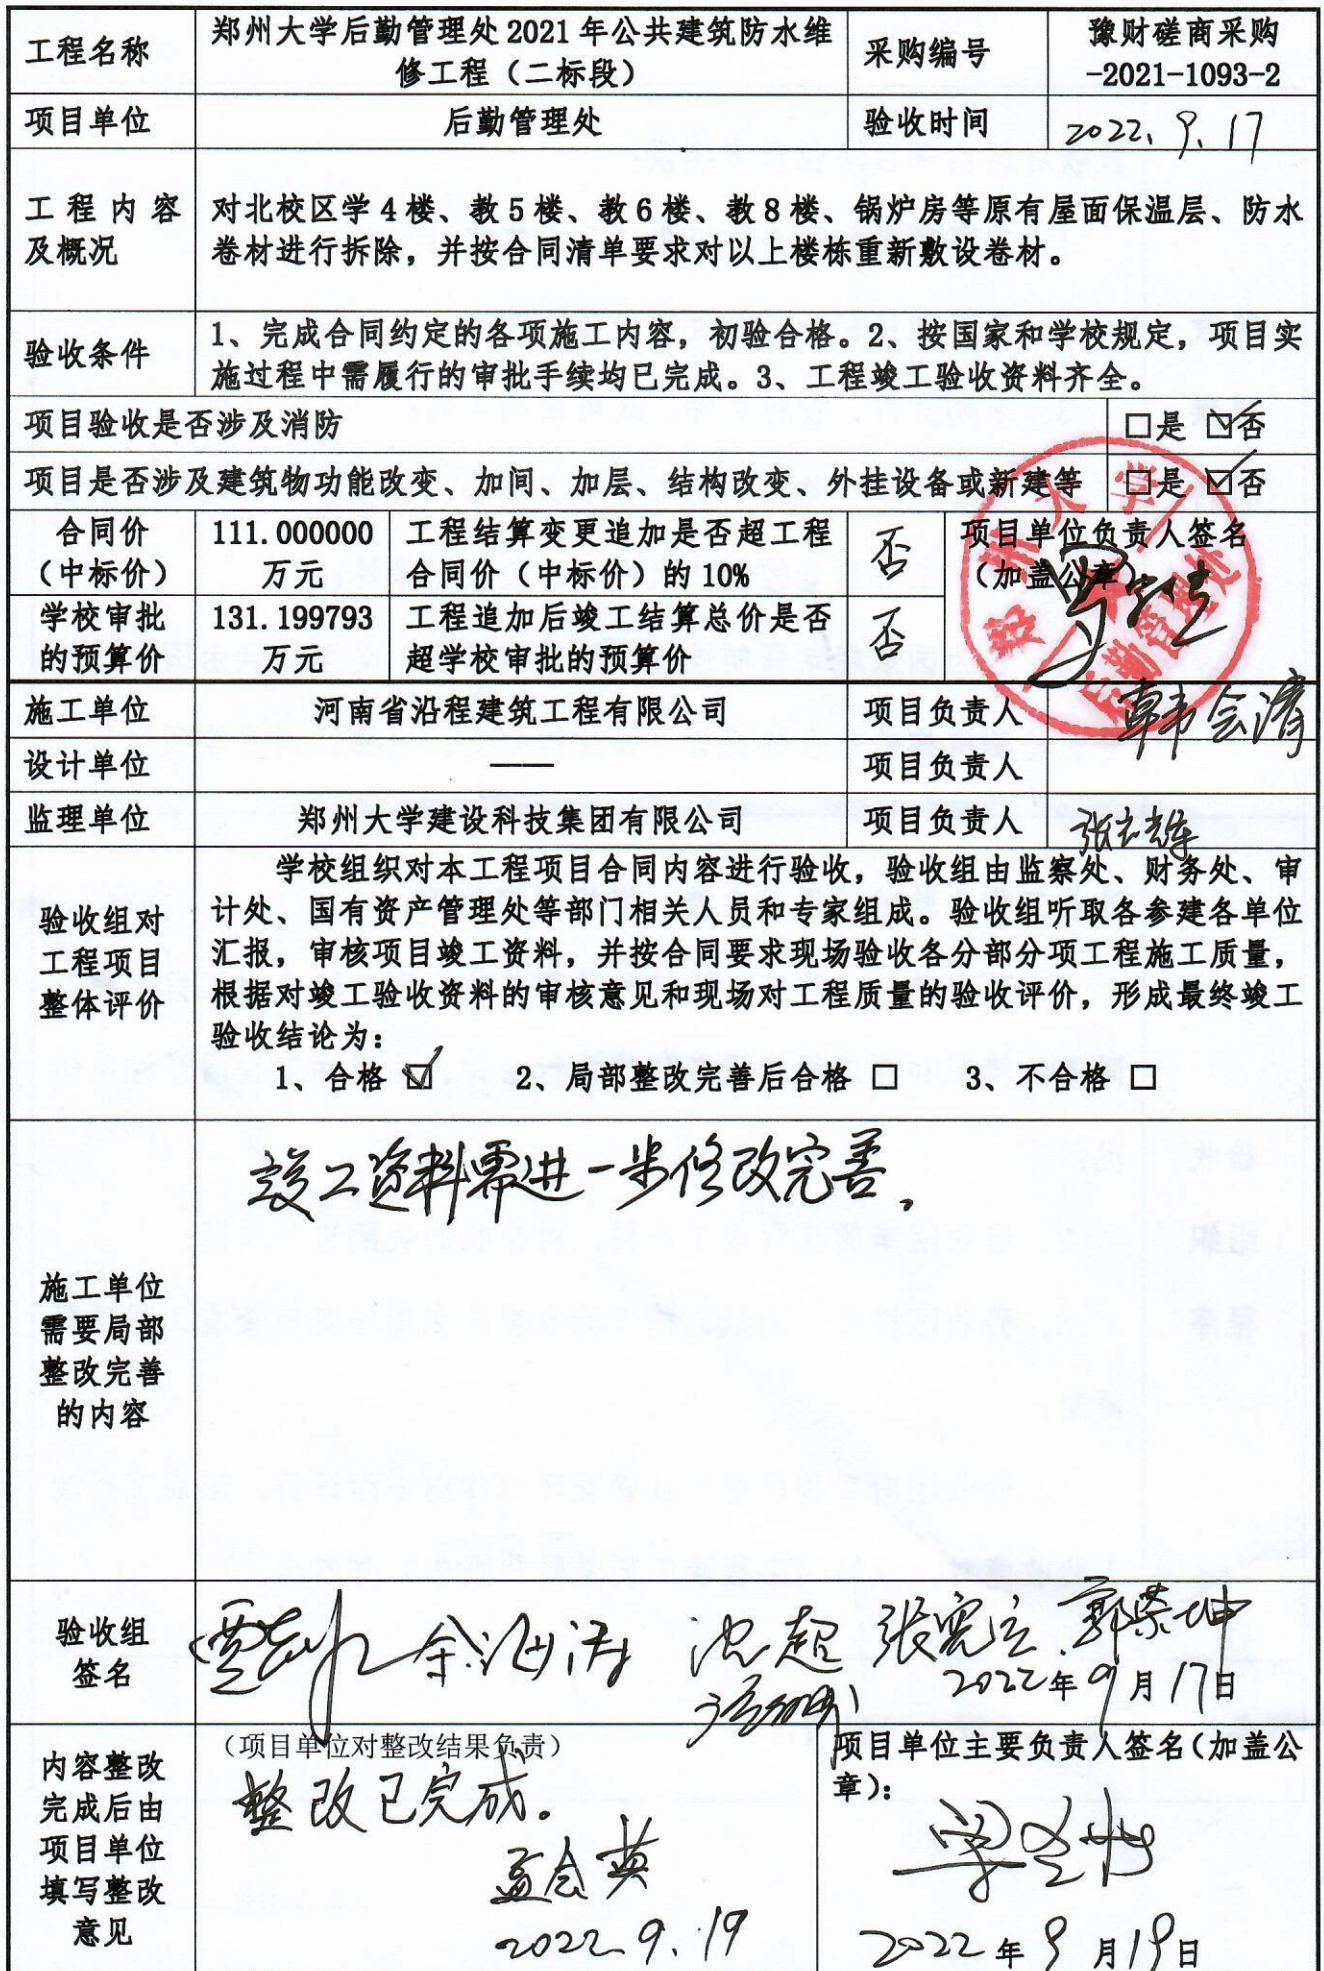 工程名称
郑州大学后勤管理处2021年公共建筑防水维
修工程（二标段）
采购编号
豫财磋商采购
-2021-1093-2
项目单位
后勤管理处
验收时间
2022.9.17
工程内容
及概况
对北校区学4楼、教5楼、教6楼、教8楼、锅炉房等原有屋面保温层、防水
卷材进行拆除，并按合同清单要求对以上楼栋重新敷设卷材。
验收条件
1、完成合同约定的各项施工内容，初验合格。2、按国家和学校规定，项目实
施过程中需履行的审批手续均已完成。3、工程竣工验收资料齐全。
项目验收是否涉及消防
□是 ☑否
项目是否涉及建筑物功能改变、加间、加层、结构改变、外挂设备或新建等
□是 ☑否
合同价
（中标价）
111.000000
万元
工程结算变更追加是否超工程
合同价（中标价）的10%
否
项目单位负责人签名
（加盖公章
学校审批
的预算价
131.199793
万元
工程追加后竣工结算总价是否
超学校审批的预算价
否
施工单位
河南省沿程建筑工程有限公司
项目负责人
韩会涛
设计单位
——
项目负责人
监理单位
郑州大学建设科技集团有限公司
项目负责人
验收组对
工程项目
整体评价
学校组织对本工程项目合同内容进行验收，验收组由监察处、财务处、审
计处、国有资产管理处等部门相关人员和专家组成。验收组听取各参建各单位
汇报，审核项目竣工资料，并按合同要求现场验收各分部分项工程施工质量，
根据对竣工验收资料的审核意见和现场对工程质量的验收评价，形成最终竣工
验收结论为：
1、合格 ☑ 2、局部整改完善后合格 □ 3、不合格 □
施工单位
需要局部
整改完善
的内容
竣工资料需进一步修改完善。
验收组
签名
沈超 张宪立 郭荣坤
2022年9月17日
内容整改
完成后由
项目单位
填写整改
意见
（项目单位对整改结果负责）
整改已完成。
孟会英
2022.9.19
项目单位主要负责人签名（加盖公
章）：
2022年9月19日